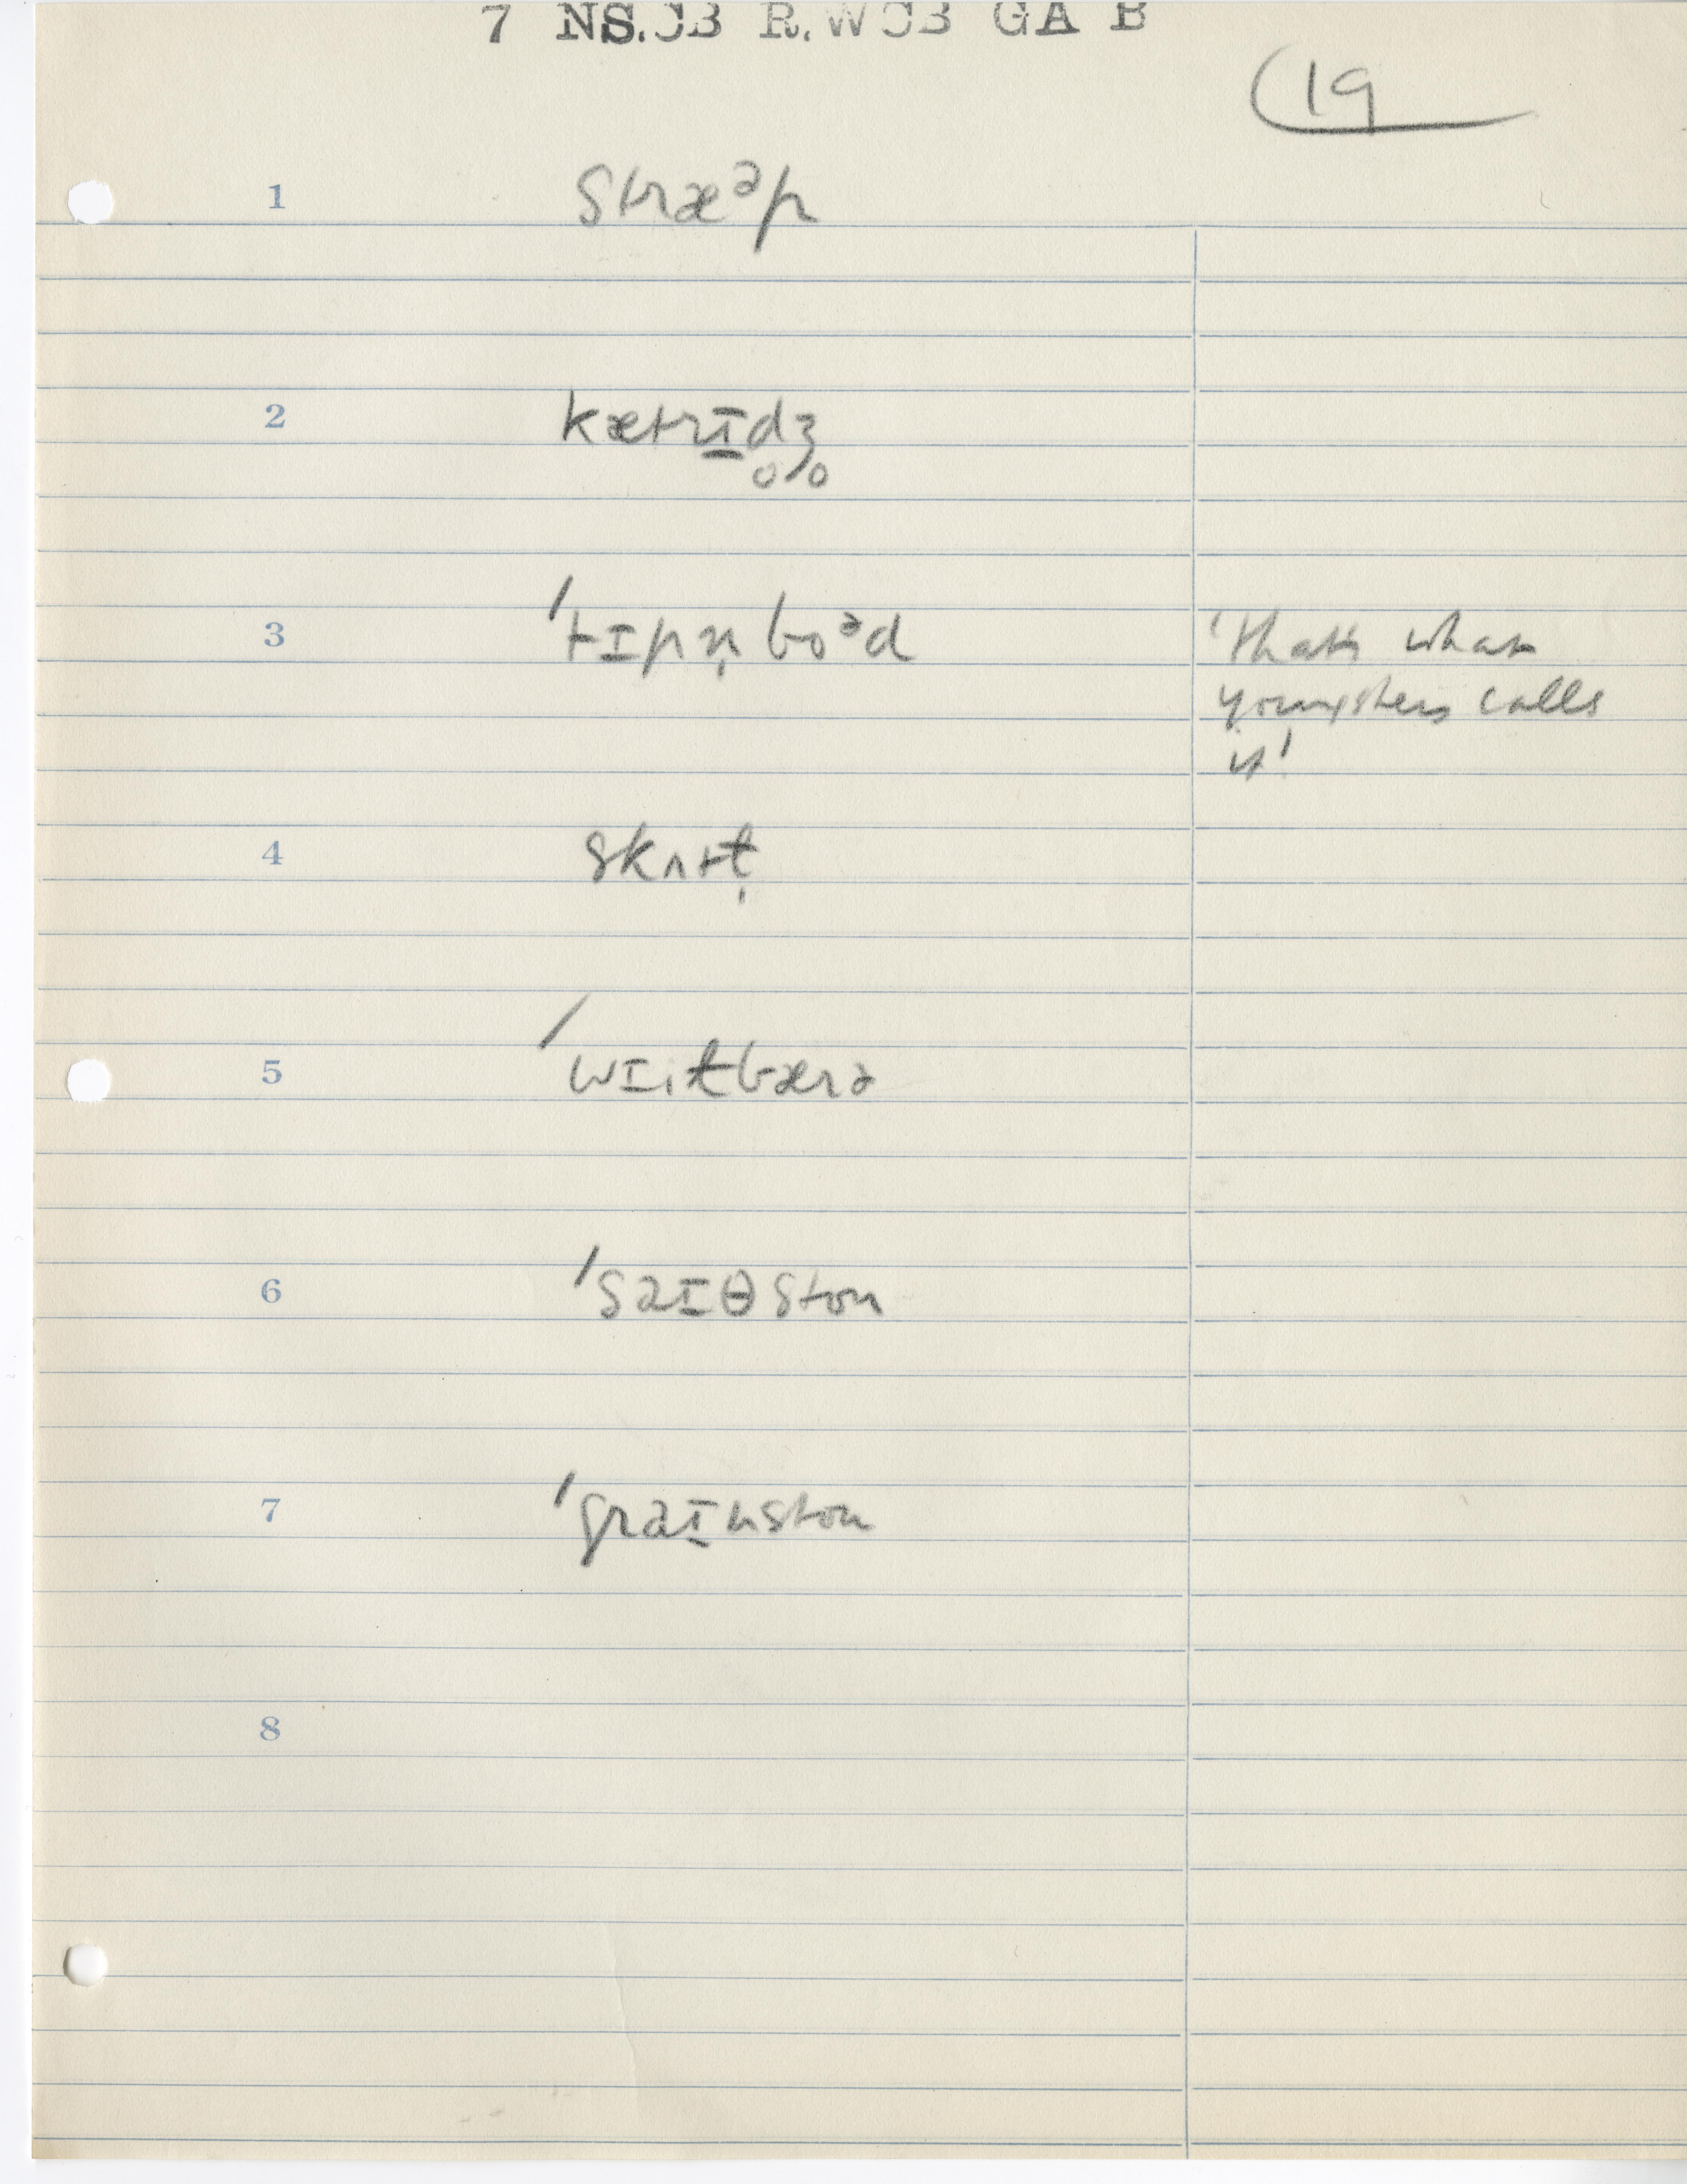 7 NS.CB R.WCB GA B
19
1 stræᵊp
2 kætrɪ̠d̥ʒ̥
3 ˈtɪpn̩bo ᵊd
'that's what
youngsters calls
it'
4 skʌtt̩
5 ˈwiˑtbærə
6 ˈsaɪθston
7 ˈgraɪnston
8